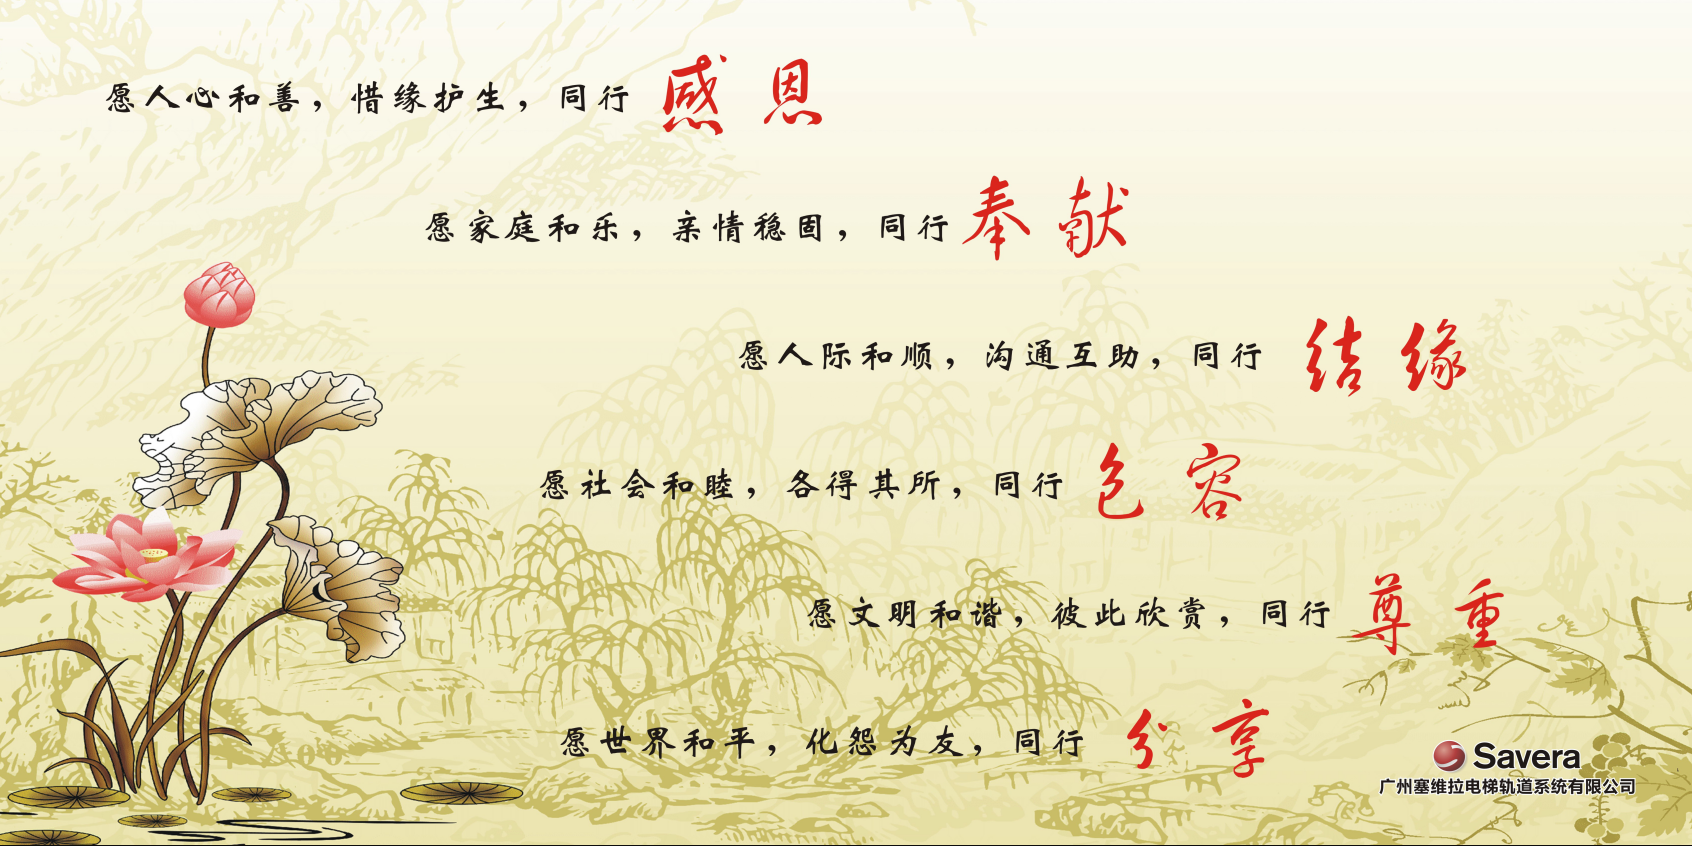 愿人心和善，惜缘护生，同行 感恩
愿家庭和乐，亲情稳固，同行 奉献
愿人际和顺，沟通互助，同行 结缘
愿社会和睦，各得其所，同行 包容
愿文明和谐，彼此欣赏，同行 尊重
愿世界和平，化怨为友，同行 分享
Savera
广州塞维拉电梯轨道系统有限公司